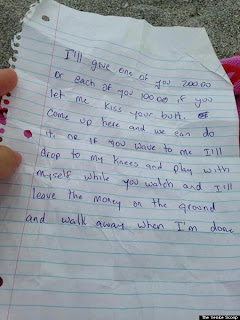 I'll give one of you 200.00
or each of you 100.00 if you
let me kiss your butt.
Come up here and we can do
it, or if you wave to me I'll
drop to my knees and play with
myself while you watch and I'll
leave the money on the ground
and walk away when I'm done
The Smoke Scoop